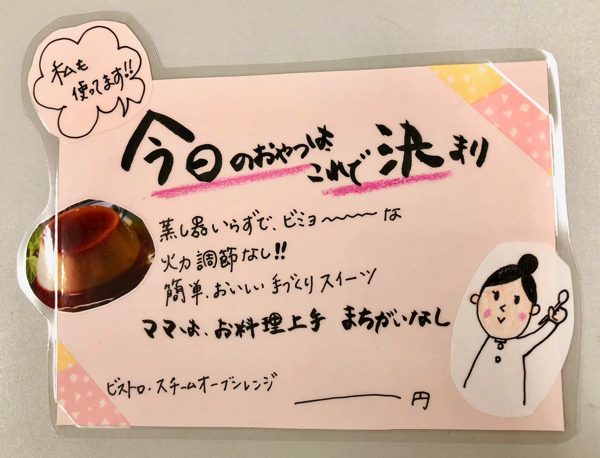 私も
使ってます!!
今日のおやつは、
これで決まり
蒸し器いらずで、ビミョ〜〜〜〜な
火力調節なし!!
簡単、おいしい手づくりスイーツ
ママは、お料理上手 まちがいなし
ビストロ・スチームオーブンレンジ
円